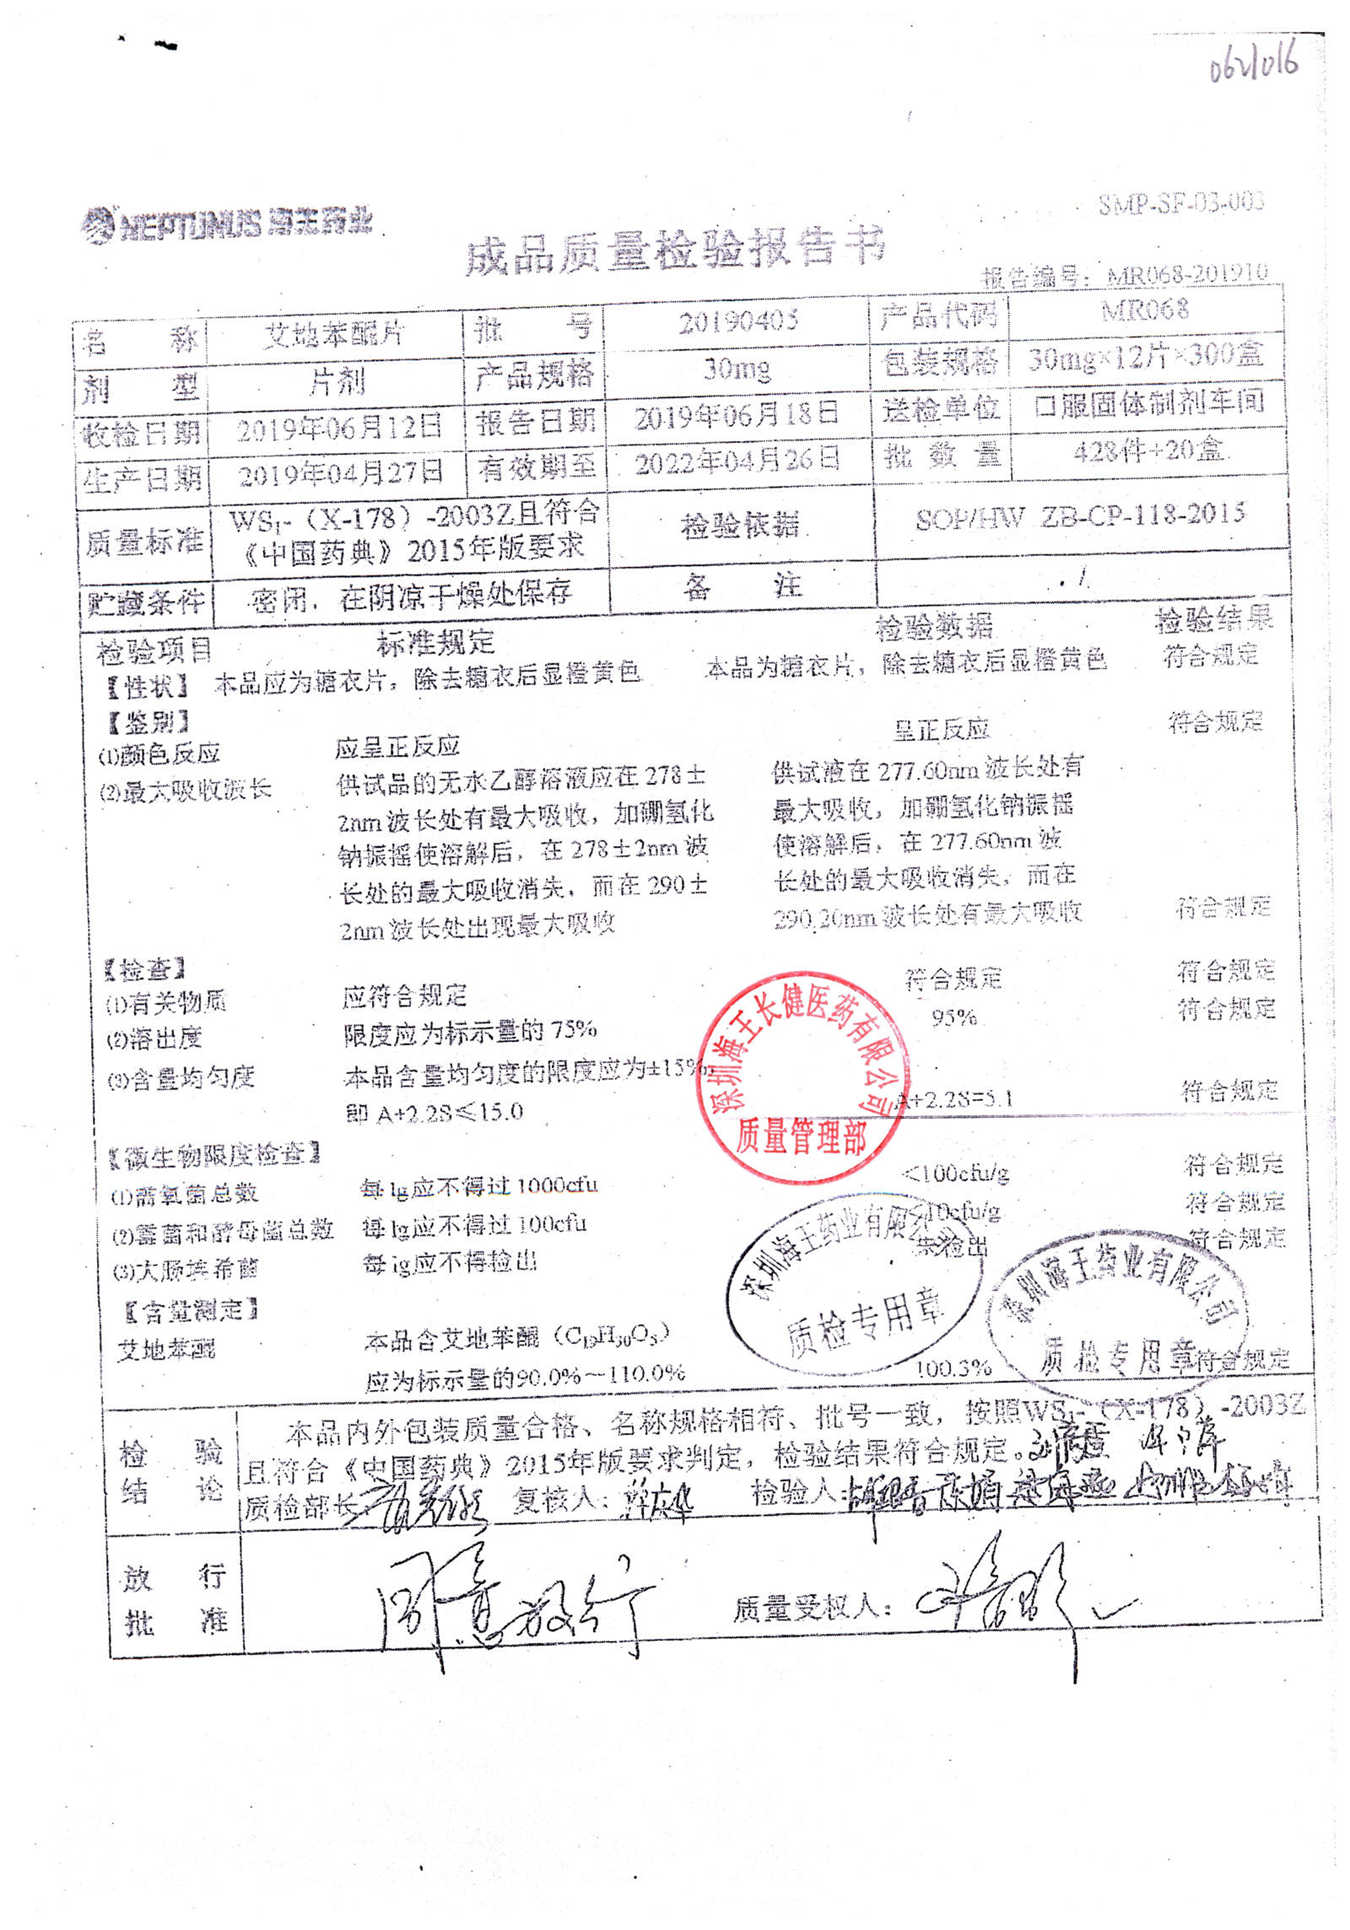 0621016
SMP-SF-03-003
NEPTUNUS 海王药业
成品质量检验报告书
报告编号：MR068-201910
名 称 艾地苯醌片 批 号 20190405 产品代码 MR068
剂 型 片剂 产品规格 30mg 包装规格 30mg×12片×300盒
收检日期 2019年06月12日 报告日期 2019年06月18日 送检单位 口服固体制剂车间
生产日期 2019年04月27日 有效期至 2022年04月26日 批 数 量 428件+20盒
质量标准 WS₁-（X-178）-2003Z且符合《中国药典》2015年版要求 检验依据 SOP/HW ZB-CP-118-2015
贮藏条件 密闭，在阴凉干燥处保存 备 注 /
检验项目 标准规定 检验数据 检验结果
【性状】 本品应为糖衣片，除去糖衣后显橙黄色 本品为糖衣片，除去糖衣后显橙黄色 符合规定
【鉴别】
⑴颜色反应 应呈正反应 呈正反应 符合规定
⑵最大吸收波长 供试品的无水乙醇溶液应在 278± 供试液在 277.60nm 波长处有
2nm 波长处有最大吸收，加硼氢化 最大吸收，加硼氢化钠振摇
钠振摇使溶解后，在 278±2nm 波 使溶解后，在 277.60nm 波
长处的最大吸收消失，而在 290± 长处的最大吸收消失，而在
2nm 波长处出现最大吸收 290.20nm 波长处有最大吸收 符合规定
【检查】
⑴有关物质 应符合规定 符合规定 符合规定
⑵溶出度 限度应为标示量的 75% 95% 符合规定
⑶含量均匀度 本品含量均匀度的限度应为±15%，
即 A+2.2S≤15.0 A+2.2S=5.1 符合规定
【微生物限度检查】
⑴需氧菌总数 每 1g应不得过 1000cfu <100cfu/g 符合规定
⑵霉菌和酵母菌总数 每 1g应不得过 100cfu <10cfu/g 符合规定
⑶大肠埃希菌 每 1g应不得检出 未检出 符合规定
【含量测定】
艾地苯醌 本品含艾地苯醌（C₁₉H₃₀O₅）
应为标示量的90.0%～110.0% 100.3% 符合规定
深圳海王长健医药有限公司
质量管理部
深圳海王药业有限公司
质检专用章
深圳海王药业有限公司
质检专用章
检 验 结 论
本品内外包装质量合格、名称规格相符、批号一致，按照WS₁-（X-178）-2003Z
且符合《中国药典》2015年版要求判定，检验结果符合规定。
质检部长： 复核人： 检验人：
放 行 批 准 同意放行 质量受权人：